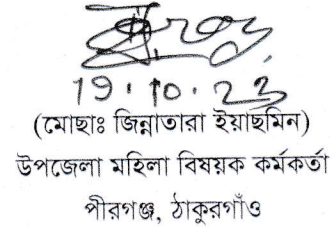 19.10.23
(মোছাঃ জিন্নাতারা ইয়াছমিন)
উপজেলা মহিলা বিষয়ক কর্মকর্তা
পীরগঞ্জ, ঠাকুরগাঁও